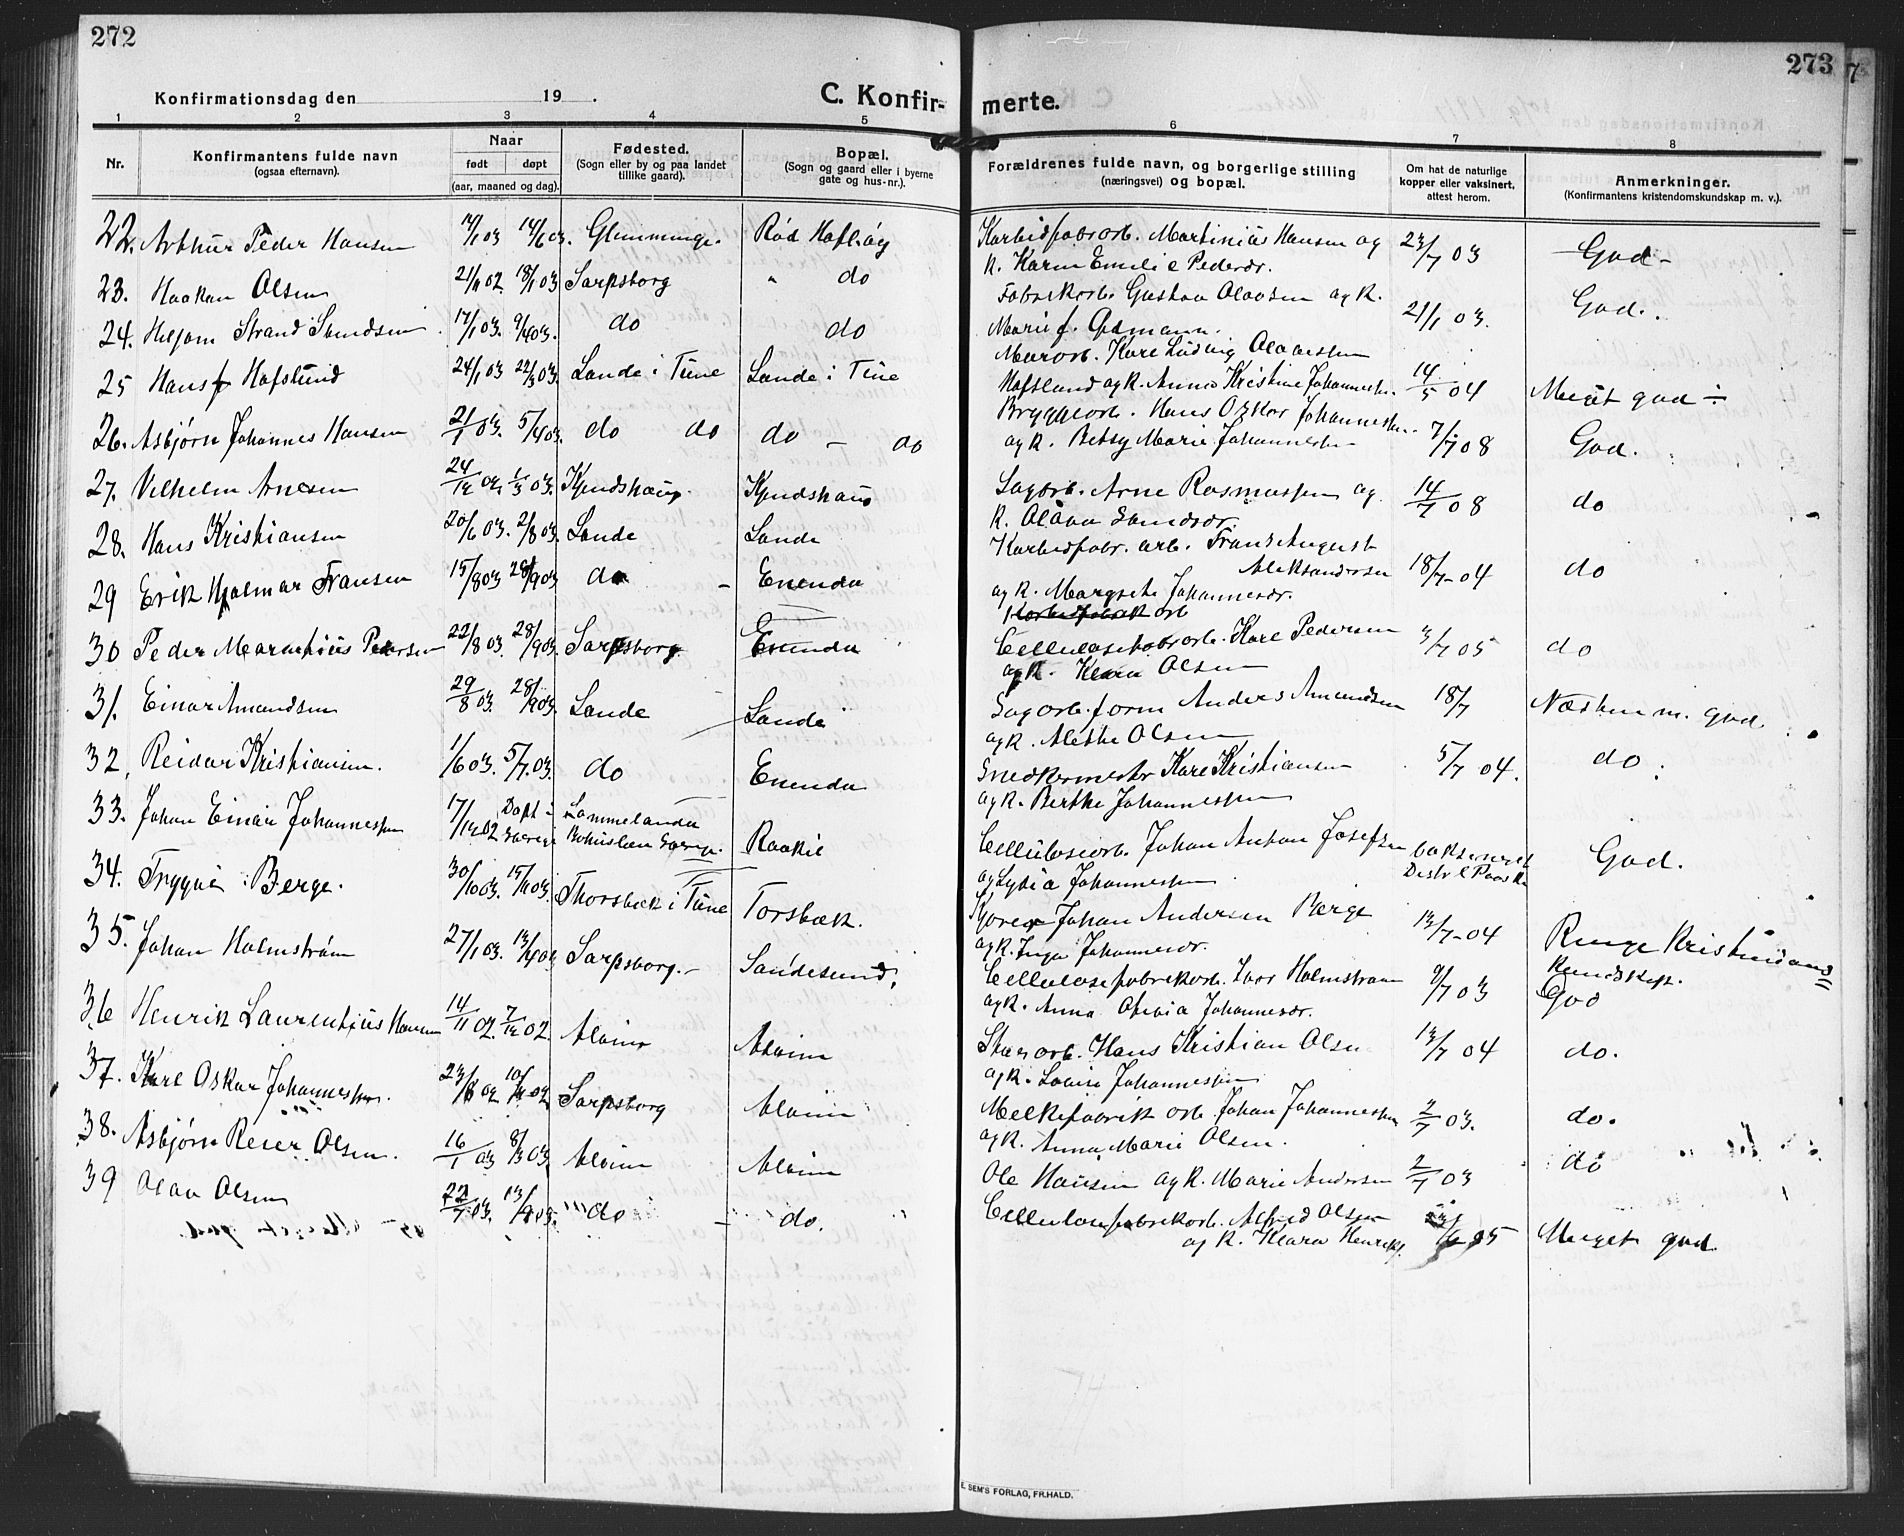 272
Konfirmationsdag den 19 .
C. Konfir-
1 2 3 4 5
Nr.
Konfirmantens fulde navn
(ogsaa efternavn).
Naar
født døpt
(aar, maaned og dag).
Fødested.
(Sogn eller by og paa landet
tillike gaard).
Bopæl.
(Sogn og gaard eller i byerne
gate og hus-nr.).
22. Arthur Peder Hansen 03 14/6 03. Glemminge. Rød Hafsløy
23. Haakon Olsen 21/11 02. 18/1 03. Sarpsborg " do
24. Strand Sundsen 17/1 03. 9/4 03. do do
25 Hans Hafslund 24/1 03 22/3 03. Sande i Tune Sande i Tune
26. Asbjørn Johannes Hansen 21/1 03. 5/4 03. do do do – do
27. Vilhelm Arnesen 24/12 02. 1/3 03. Kyndshaug. Kyndshaug
28. Hans Kristiansen 20/6 03. 2/8 03. Sande Sande
29 Erik Hjalmar Fransen 15/8 03. 28/9 03. do – Enenda
30 Peder Marentius Pedersen 22/8 03. 28/9 03. Sarpsborg. Enenda
31. Einar Amandsen 29/8 03. 28/9 03. Sande Sande
32. Reidar Kristiansen. 1/6 03. 5/7. 03. do Enenda
33. Johan Einar Johannessen 17/12 02 Døpt i Sverige Bohuslæn Sverige. Raakil
34. Trygve Berge. 30/10 03. 03. Thorsbæk i Tune Torsbæk.
35. Johan Holmstrøm 27/1 03. 13/4 03 Sarpsborg. – Sandesund.
36 Henrik Laurentius Hansen 14/11 02. 7/12 02. Alvim Alvim
37. Karl Oskar Johannessen. 02 02. Sarpsborg Alvim
38. Asbjørn Reier Olsen. 16/1 03 8/3 03. Alvim Alvim
39 Olav Olsen 22/7 03. 13/9 03. do – do.
273
merte.
6 7 8
Forældrenes fulde navn, og borgerlige stilling
(næringsvei) og bopæl.
Om hat de naturlige
kopper eller vaksinert,
attest herom.
Anmerkninger.
(Konfirmantens kristendomskundskap m. v.).
Karbidfabarb. Martinius Hansen og 23/7 03 God –
k. Karen Emilie Pedersdr.
Fabrikarb. Gustav Olavsen og k. 21/1 03. God.
Marie f. Ødmann.
Murarb. Karl Ludvig Olavessen
Hafslund og k. Anna Kristine Johannessen. 14/5 04 Meget god ÷
Bryggearb. Hans Oskar Johannessen. 7/7 08 God.
og k. Betsy Marie Johannessen
Sagarb. Arne Rasmussen og 14/7 08 do
k. Olava
Karbidfabr. arb. Frans August
Aleksandersen 18/7 – 04 do
og k. Margrete Johannesdr.
Karbidfabrik arb
Cellulosefabrarb. Karl Pedersen 3/7 05 do
og k. Klara Olsen
Sagarb. form Anders Amundsen 18/7 Næsten m. god.
og k. Alethe Olsen
Snedkermester Karl Kristiansen 5/7 04. do
og k. Berthe Johannessen
Cellulosearb. Johan Anton Josefsen God.
og Lydia Johannessen
Johan Andersen Berge 13/7 – 04
og k. Inga Johannesdr.
Ringe Kristendoms
kundskap.
Cellulosefabrikarb. Ivar Holmstrøm 9/7 03 God
og k. Anna Olivia Johannesdr.
arb. Hans Kristian Olsen 13/7 04 do.
og k. Lovise Johannessen
Melkefabrik arb. Johan Johannessen 2/7 03. do.
og k. Anna Marie Olsen.
Ole Hansen og k. Marie Andersen 2/7 03 do
Cellulosefabrikarb. Alfred Olsen 05 Meget god
og k. Klara
E. SEM'S FORLAG, FR.HALD.